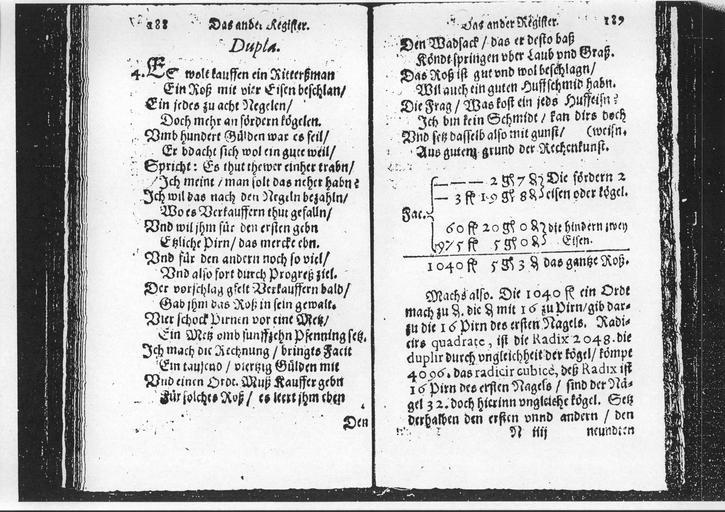 188 Das ander Register.
Dupla.
4. ES wolt kauffen ein Rittersman
Ein Roß mit vier Eisen beschlan/
Ein jedes zu acht Negelen/
Doch mehr an fördern kögelen.
Vmb hundert Gülden war es feil/
Er bdacht sich wol ein gute weil/
Spricht: Es thut thewer einher trabn/
Ich meint / man solt das neher habn?
Ich wil das nach den Negeln bezahln/
Wo es Verkauffern thu gefalln/
Vnd wil jhm für den ersten gebn
Etzliche Pirn/ das mercke ebn.
Vnd für den andern noch so viel/
Vnd also fort durch Progreß ziel.
Der vorschlag gfelt Verkauffern bald/
Gab jhm das Roß in sein gewalt.
Vier schock Pirnen vor eine Metz/
Ein Metz vmb funffzehn Pfenning setz.
Ich mach die Rechnung / bringts Facit
Ein tausend / viertzig Gülden mit
Vnd einen Ordt. Muß Kauffer gebn
Für solches Roß / es leert jhm eben
Den
Das ander Register. 189
Den Wadsack / das er desto baß
Köndt springen vber Laub vnd Graß.
Das Roß ist gut vnd wol beschlagn/
Wil auch ein guten Huffschmid habn.
Die Frag / Was kost ein jeds Huffeisn?
Ich bin kein Schmidt / kan dirs doch
Vnd setz dasselb also mit gunst/ (weisn.
Aus gutem grund der Rechenkunst.
— — — 2 gl 7 ₰ Die fördern 2
— 3 fl 19 gl 8 ₰ eisen oder kögel.
Fac.
60 fl 20 gl 0 ₰ die hindern zwey
975 fl 5 gl 0 ₰ Eisen.
1040 fl 5 gl 3 ₰ das gantze Roß.
Machs also. Die 1040 fl ein Ordt
mach zu ₰. die ₰ mit 16 zu Pirn/gib dar-
zu die 16 Pirn des ersten Nagels. Radi-
cirs quadratè, ist die Radix 2048. die
duplir durch vngleichheit der kögel/ kömpt
4096. das radicir cubicè, deß Radix ist
16 Pirn des ersten Nagels / sind der Nä-
gel 32. doch hierinn vngleiche kögel. Setz
derhalben den ersten vnnd andern / den
N iiij neundten